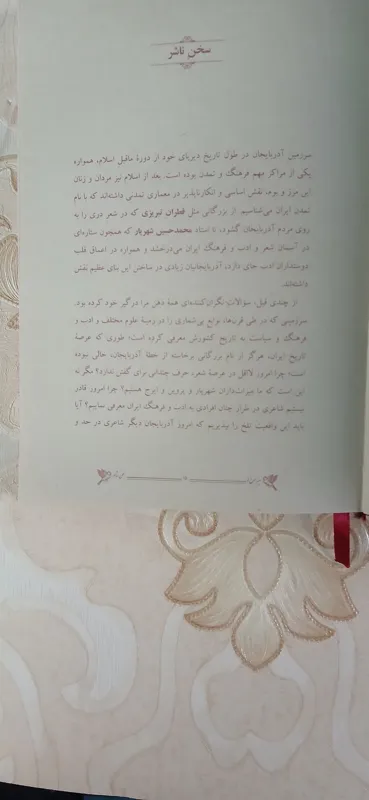 سخن ناشر
سرزمین آذربایجان در طول تاریخ دیرپای خود از دورهٔ ماقبل اسلام، همواره
یکی از مراکز مهم فرهنگ و تمدن بوده است. بعد از اسلام نیز مردان و زنان
این مرز و بوم، نقش اساسی و انکارناپذیر در معماری تمدنی داشته‌اند که با نام
تمدن ایران می‌شناسیم. از بزرگانی مثل قطران تبریزی که در شعر دری را به
روی مردم آذربایجان گشود، تا استاد محمدحسین شهریار که همچون ستاره‌ای
در آسمان شعر و ادب و فرهنگ ایران می‌درخشد و همواره در اعماق قلب
دوستداران ادب جای دارد، آذربایجانیان زیادی در ساختن این بنای عظیم نقش
داشته‌اند.
از چندی قبل، سؤالات نگران‌کننده‌ای همهٔ ذهن مرا درگیر خود کرده بود.
سرزمینی که در طی قرن‌ها، نوابغ بی‌شماری را در زمینهٔ علوم مختلف و ادب و
فرهنگ و سیاست به تاریخ کشورش معرفی کرده است؛ طوری که عرصهٔ
تاریخ ایران، هرگز از نام بزرگانی برخاسته از خطهٔ آذربایجان، خالی نبوده
است؛ چرا امروز لااقل در عرصهٔ شعر، حرف چندانی برای گفتن ندارد؟ مگر نه
این است که ما میراث‌داران شهریار و پروین و ایرج هستیم؟ چرا امروز قادر
نیستیم شاعری در طراز چنان افرادی به ادب و فرهنگ ایران معرفی نماییم؟ آیا
باید این واقعیت تلخ را بپذیریم که امروز آذربایجان دیگر شاعری در حد و